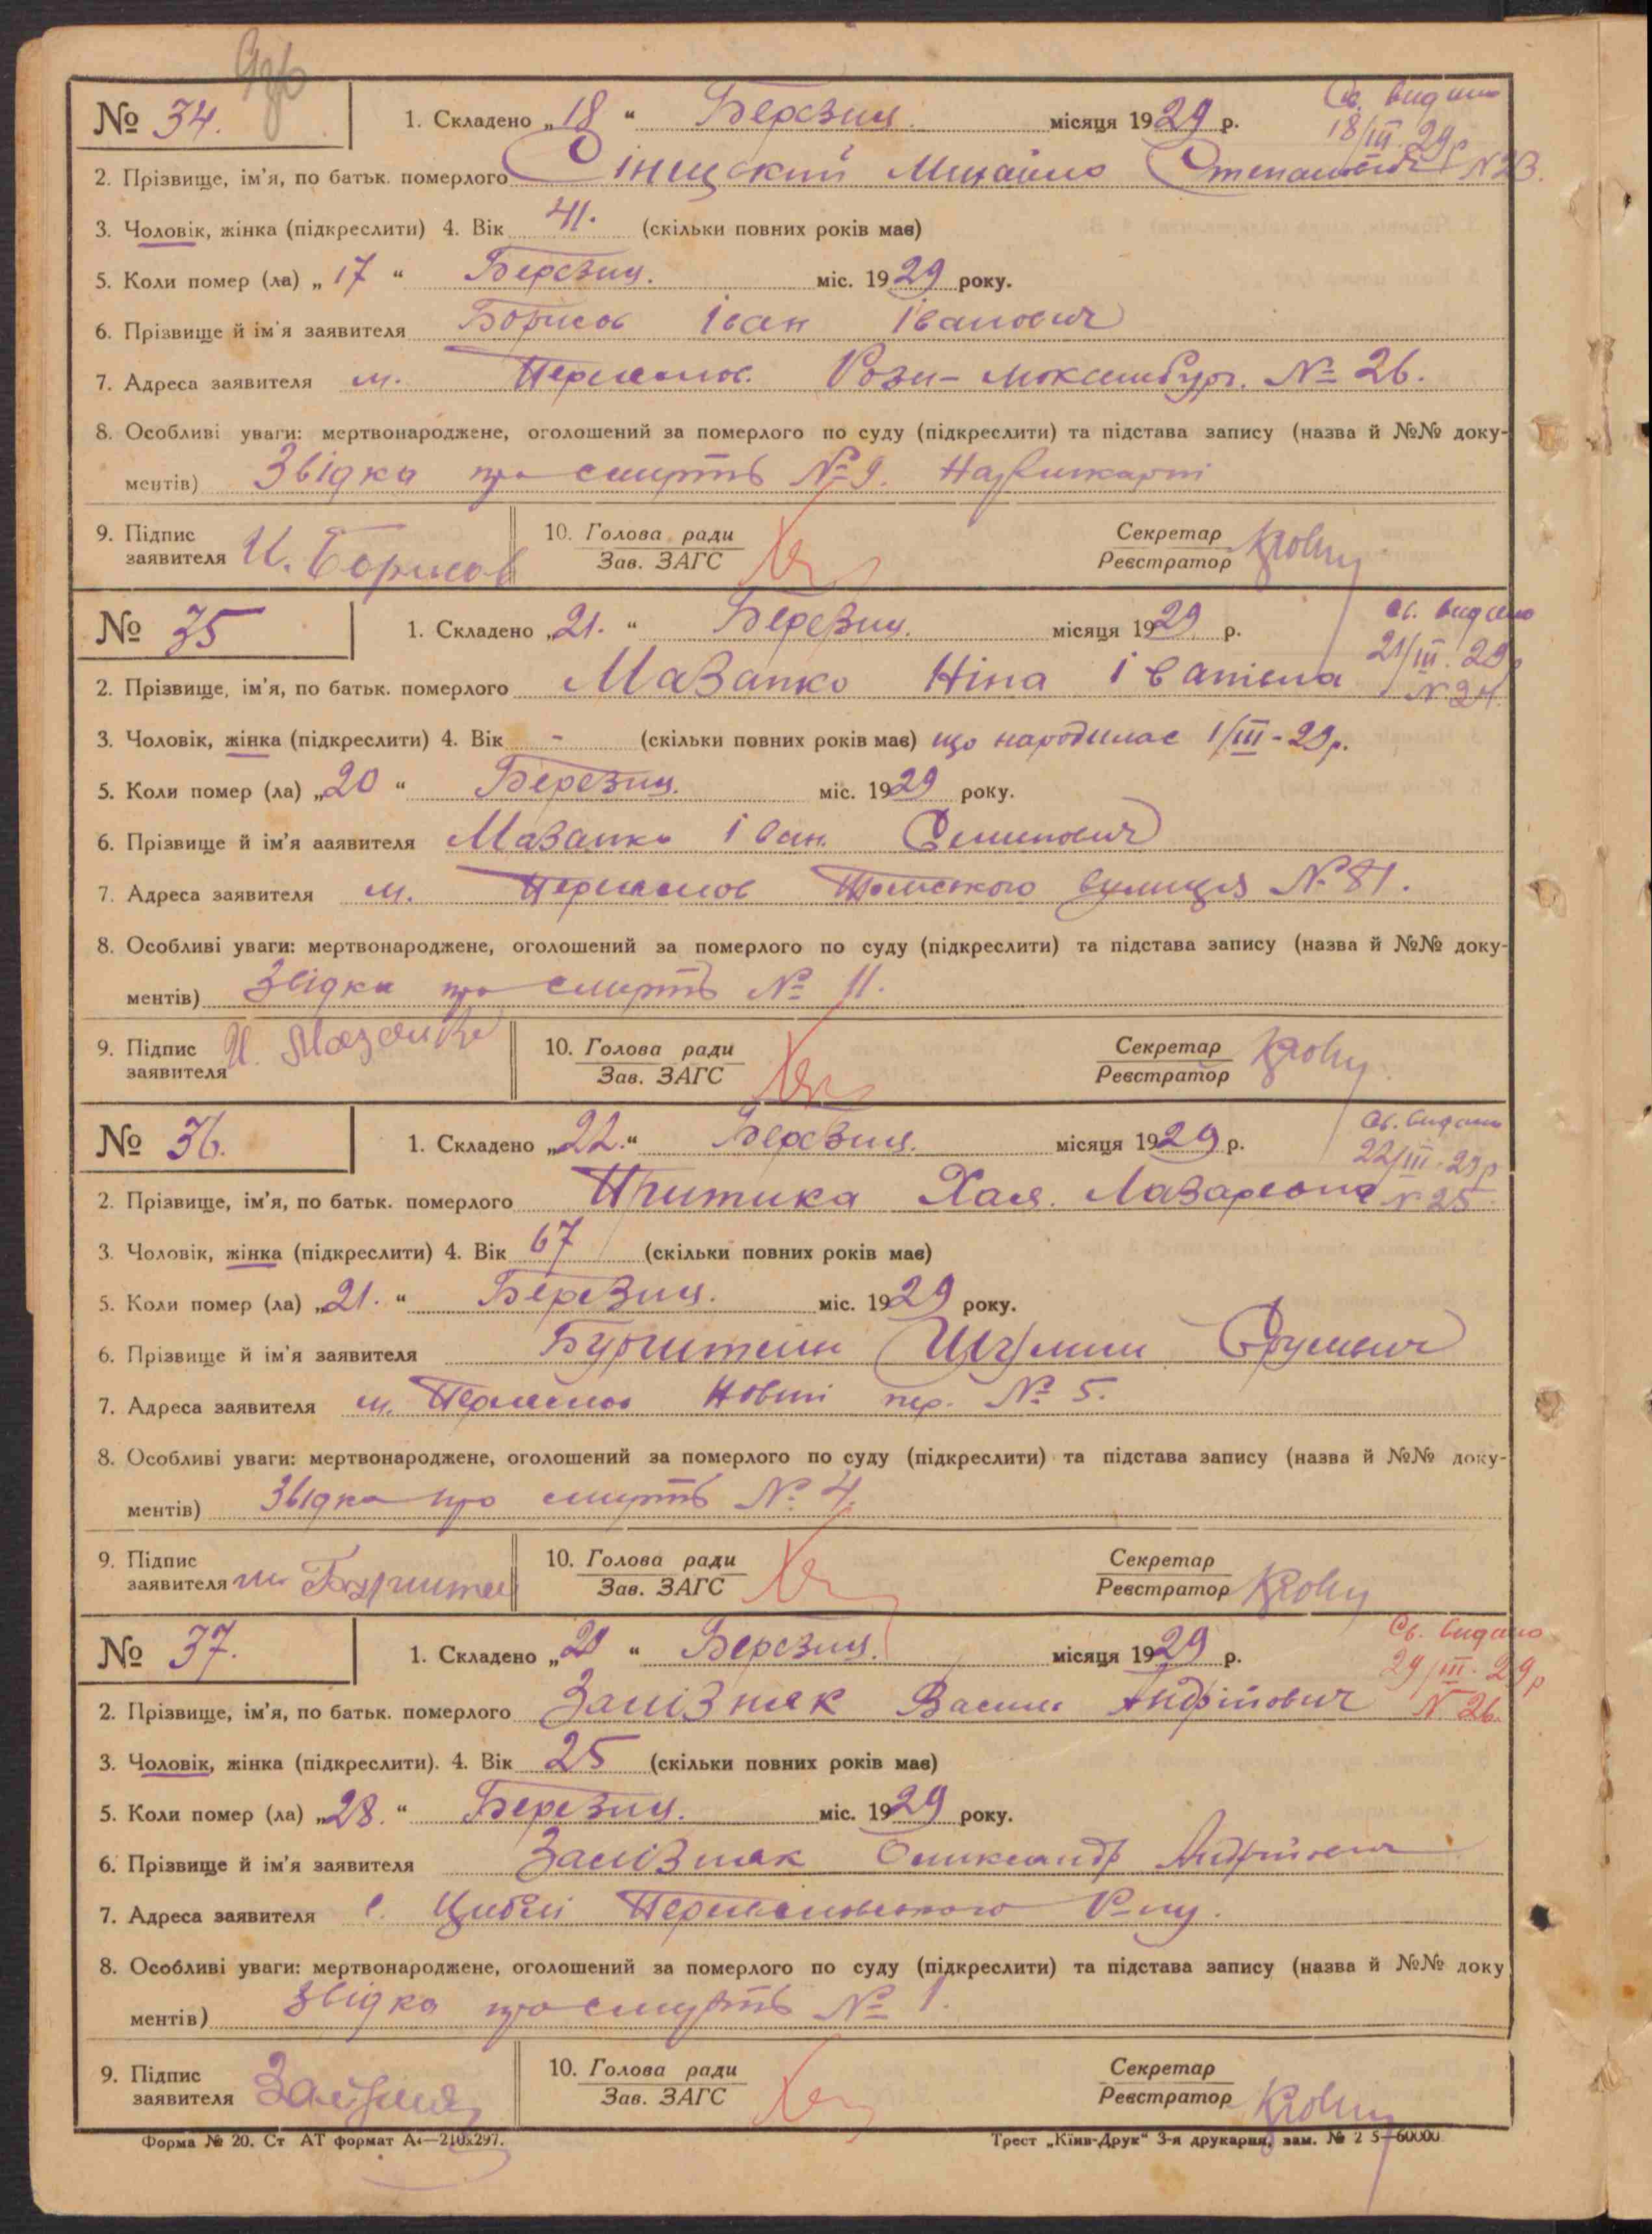 № 34. 1. Складено „18“ Березня. місяця 1929 р. Св. видано
18/III 29р N 23.
2. Прізвище, ім'я, по батьк. померлого Сініцский Михайло Степанович
3. Чоловік, жінка (підкреслити) 4. Вік 41. (скільки повних років має)
5. Коли помер (ла) „17“ Березня. міс. 1929 року.
6. Прізвище й ім'я заявителя Борисов Іван Іванович
7. Адреса заявителя м. Переяслов. Рози-Люксембург. № 26.
8. Особливі уваги: мертвонароджене, оголошений за померлого по суду (підкреслити) та підстава запису (назва й №№ доку-
ментів) Звідка про смерть № 9.
9. Підпис заявителя И. Борисов 10. Голова ради Секретар
Зав. ЗАГС Реєстратор
№ 35 1. Складено „21.“ Березня. місяця 1929 р. Св. видано
21/III. 29р N. 24.
2. Прізвище, ім'я, по батьк. померлого Мазапко Ніна Іванівна
3. Чоловік, жінка (підкреслити) 4. Вік - (скільки повних років має) що народилас 1/III-29р.
5. Коли помер (ла) „20“ Березня. міс. 1929 року.
6. Прізвище й ім'я ааявителя Мазапко Іван
7. Адреса заявителя м. Переяслов вулиця № 81.
8. Особливі уваги: мертвонароджене, оголошений за померлого по суду (підкреслити) та підстава запису (назва й №№ доку-
ментів) Звідка про смерть № 11.
9. Підпис заявителя 10. Голова ради Секретар
Зав. ЗАГС Реєстратор
№ 36. 1. Складено „22.“ Березня. місяця 1929 р. Св. видано
22/III-29р N 25
2. Прізвище, ім'я, по батьк. померлого Притика Хая. Лазаровна
3. Чоловік, жінка (підкреслити) 4. Вік 67 (скільки повних років має)
5. Коли помер (ла) „21.“ Березня. міс. 1929 року.
6. Прізвище й ім'я заявителя Бурштейн
7. Адреса заявителя м. Переяслов Новий пер. № 5.
8. Особливі уваги: мертвонароджене, оголошений за померлого по суду (підкреслити) та підстава запису (назва й №№ доку-
ментів) Звідка про смерть № 4.
9. Підпис заявителя 10. Голова ради Секретар
Зав. ЗАГС Реєстратор
№ 37. 1. Складено „ “ Березня. місяця 1929 р. Св. видано
29/III. 29р N 26.
2. Прізвище, ім'я, по батьк. померлого Залізняк Василь Андрійович
3. Чоловік, жінка (підкреслити). 4. Вік 25 (скільки повних років має)
5. Коли помер (ла) „28.“ Березня. міс. 1929 року.
6. Прізвище й ім'я заявителя Залізняк Олександр Андрійович
7. Адреса заявителя с. Циблі Переяславського Р-ну.
8. Особливі уваги: мертвонароджене, оголошений за померлого по суду (підкреслити) та підстава запису (назва й №№ доку
ментів) Звідка про смерть № 1.
9. Підпис заявителя 10. Голова ради Секретар
Зав. ЗАГС Реєстратор
Форма № 20. Ст АТ формат А4—210x297. Трест „Київ-Друк“ 3-я друкарня, зам. № 2 5—60000